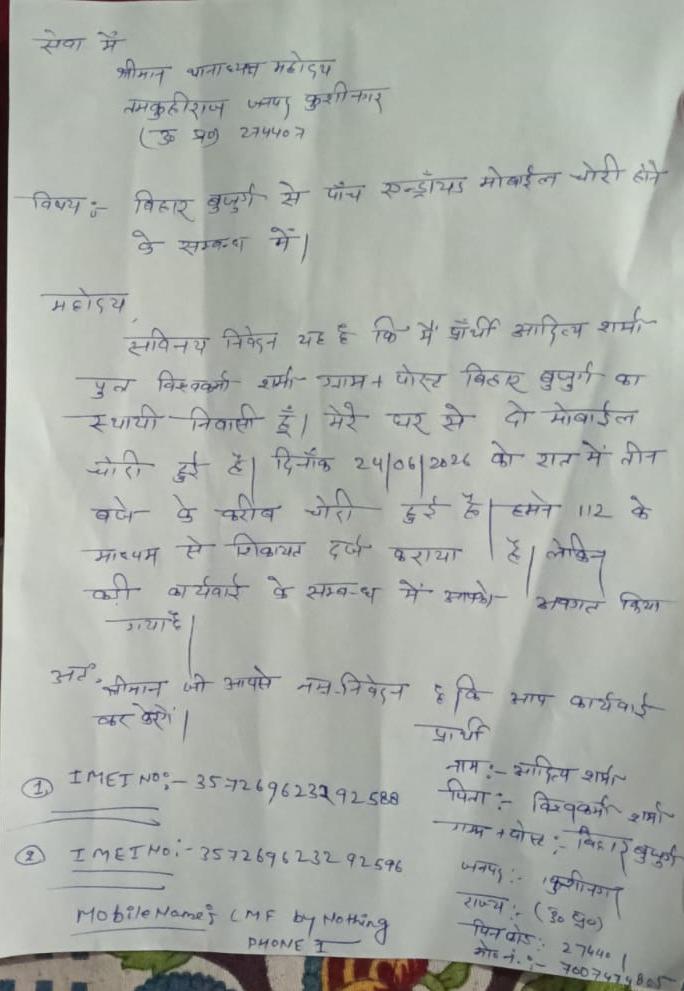 सेवा में
श्रीमान थानाध्यक्ष महोदय
तमकुहीराज जनपद कुशीनगर
(उ0 प्र0) 274407
विषय :- विहार बुजुर्ग से पाँच एन्ड्रॉयड मोबाईल चोरी होने
के सम्बन्ध में।
महोदय,
सविनय निवेदन यह है कि मैं प्रार्थी आदित्य शर्मा
पुत्र विश्वकर्मा शर्मा ग्राम + पोस्ट विहार बुजुर्ग का
स्थायी निवासी हूँ। मेरे घर से दो मोबाईल
चोरी हुई है। दिनाँक 24/06/2026 को रात में तीन
बजे के करीब चोरी हुई है। हमने 112 के
माध्यम से शिकायत दर्ज कराया है। लेकिन
कार्यवाई के सम्बन्ध में आपको अवगत किया
गया है।
अतः श्रीमान जी आपसे नम्र निवेदन है कि आप कार्यवाई
कर देगें।
प्रार्थी
नाम :- आदित्य शर्मा
पिता :- विश्वकर्मा शर्मा
ग्राम + पोस्ट :- विहार बुजुर्ग
जनपद :- कुशीनगर
राज्य :- (उ0 प्र0)
पिन कोड : 27440
मो0 नं. :- 7007474805
① IMEI NO :- 357269623292588
② IMEI NO :- 357269623292596
Mobile Name : CMF by Nothing
PHONE 1